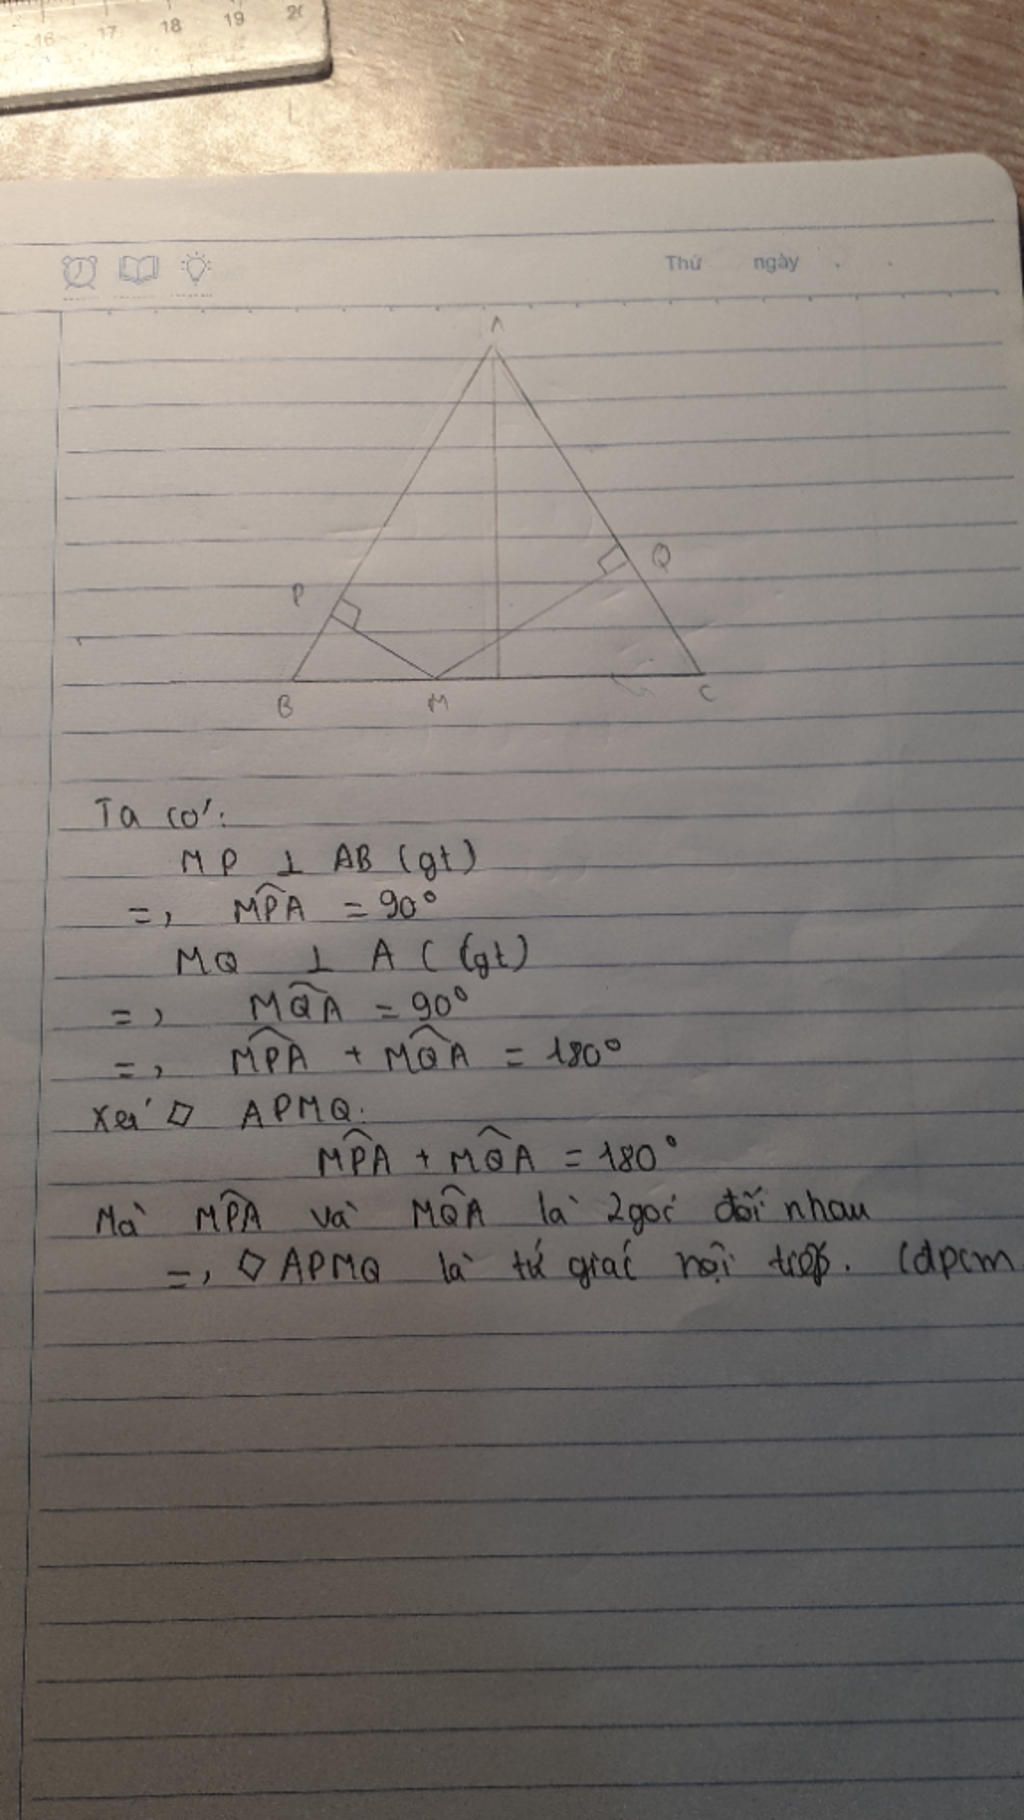 16 17 18 19 20
Thứ ngày
A
P
Q
B
M
C
Ta có:
MP ⊥ AB (gt)
=> MPA = 90°
MQ ⊥ AC (gt)
=> MQA = 90°
=> MPA + MQA = 180°
Xét ▱ APMQ:
MPA + MQA = 180°
Mà MPA và MQA là 2 góc đối nhau
=> ▱ APMQ là tứ giác nội tiếp. (đpcm